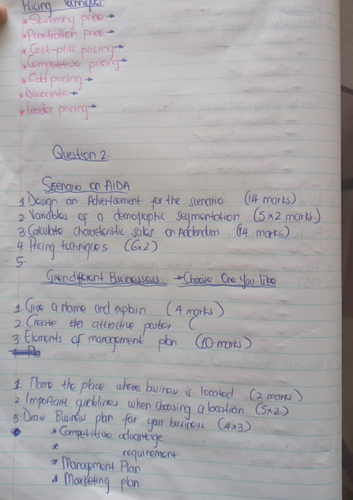 Pricing Techniques
* Skimming price →
* Penetration price →
* Cost-plus pricing →
* Competitive pricing →
* Odd pricing →
* Discounts →
* Leader pricing →
Question 2
Scenario on AIDA
1 Design an Advertisement for the scenario (14 marks)
2 Variables of a demographic segmentation (5x2 marks)
3 Calculate characteristic sales on Addendum (14 marks)
4 Pricing techniques (6x2)
5.
Given different Businesses → Choose One you like
1 Give a Name and explain (4 marks)
2. Create an attractive poster (
3 Elements of management plan (10 marks)
1 Name the place where business is located (2 marks)
2 Important guidelines when choosing a location (5x2)
3 Draw Business plan for your business (4x3)
* Competitive advantage
* requirement
* Management Plan
* Marketing plan